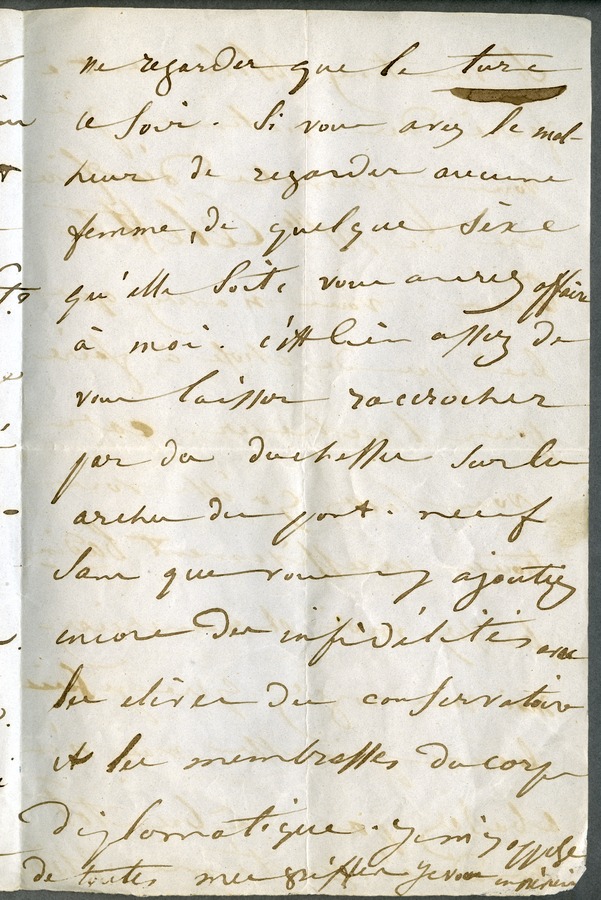 ne regarder que le turc
ce soir. Si vous avez le mal-
heur de regarder aucune
femme, de quelque sexe
qu'elle soit, vous aurez affaire
à moi. c'est bien assez de
vous laisser raccrocher
par des duchesses sur les
arches du pont-neuf
sans que vous y ajoutiez
encore des infidélités avec
les élèves du conservatoire
et les membresses du corps
diplomatique. je m'y oppose
de toutes mes griffes je vous